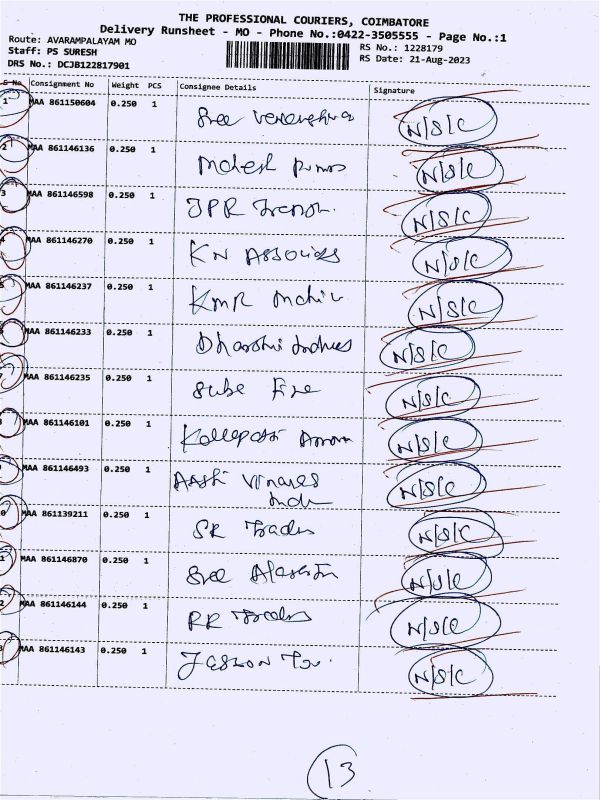 THE PROFESSIONAL COURIERS, COIMBATORE
Delivery Runsheet - MO - Phone No.:0422-3505555 - Page No.:1
Route: AVARAMPALAYAM MO
RS No.: 1228179
Staff: PS SURESH
RS Date: 21-Aug-2023
DRS No.: DCJB122817901
S No Consignment No Weight PCS Consignee Details Signature
1 MAA 861150604 0.250 1 Sree N/S/C
2 MAA 861146136 0.250 1 Mahesh N/S/C
3 MAA 861146598 0.250 1 JPR N/S/C
4 MAA 861146270 0.250 1 KN Associates N/S/C
5 MAA 861146237 0.250 1 KMR N/S/C
MAA 861146233 0.250 1 Dharshi N/S/C
7 MAA 861146235 0.250 1 Sube Fire N/S/C
MAA 861146101 0.250 1 N/S/C
MAA 861146493 0.250 1 N/S/C
0 MAA 861139211 0.250 1 SR Traders N/S/C
1 MAA 861146870 0.250 1 Sree N/S/C
2 MAA 861146144 0.250 1 RR Traders N/S/C
3 MAA 861146143 0.250 1 N/S/C
13